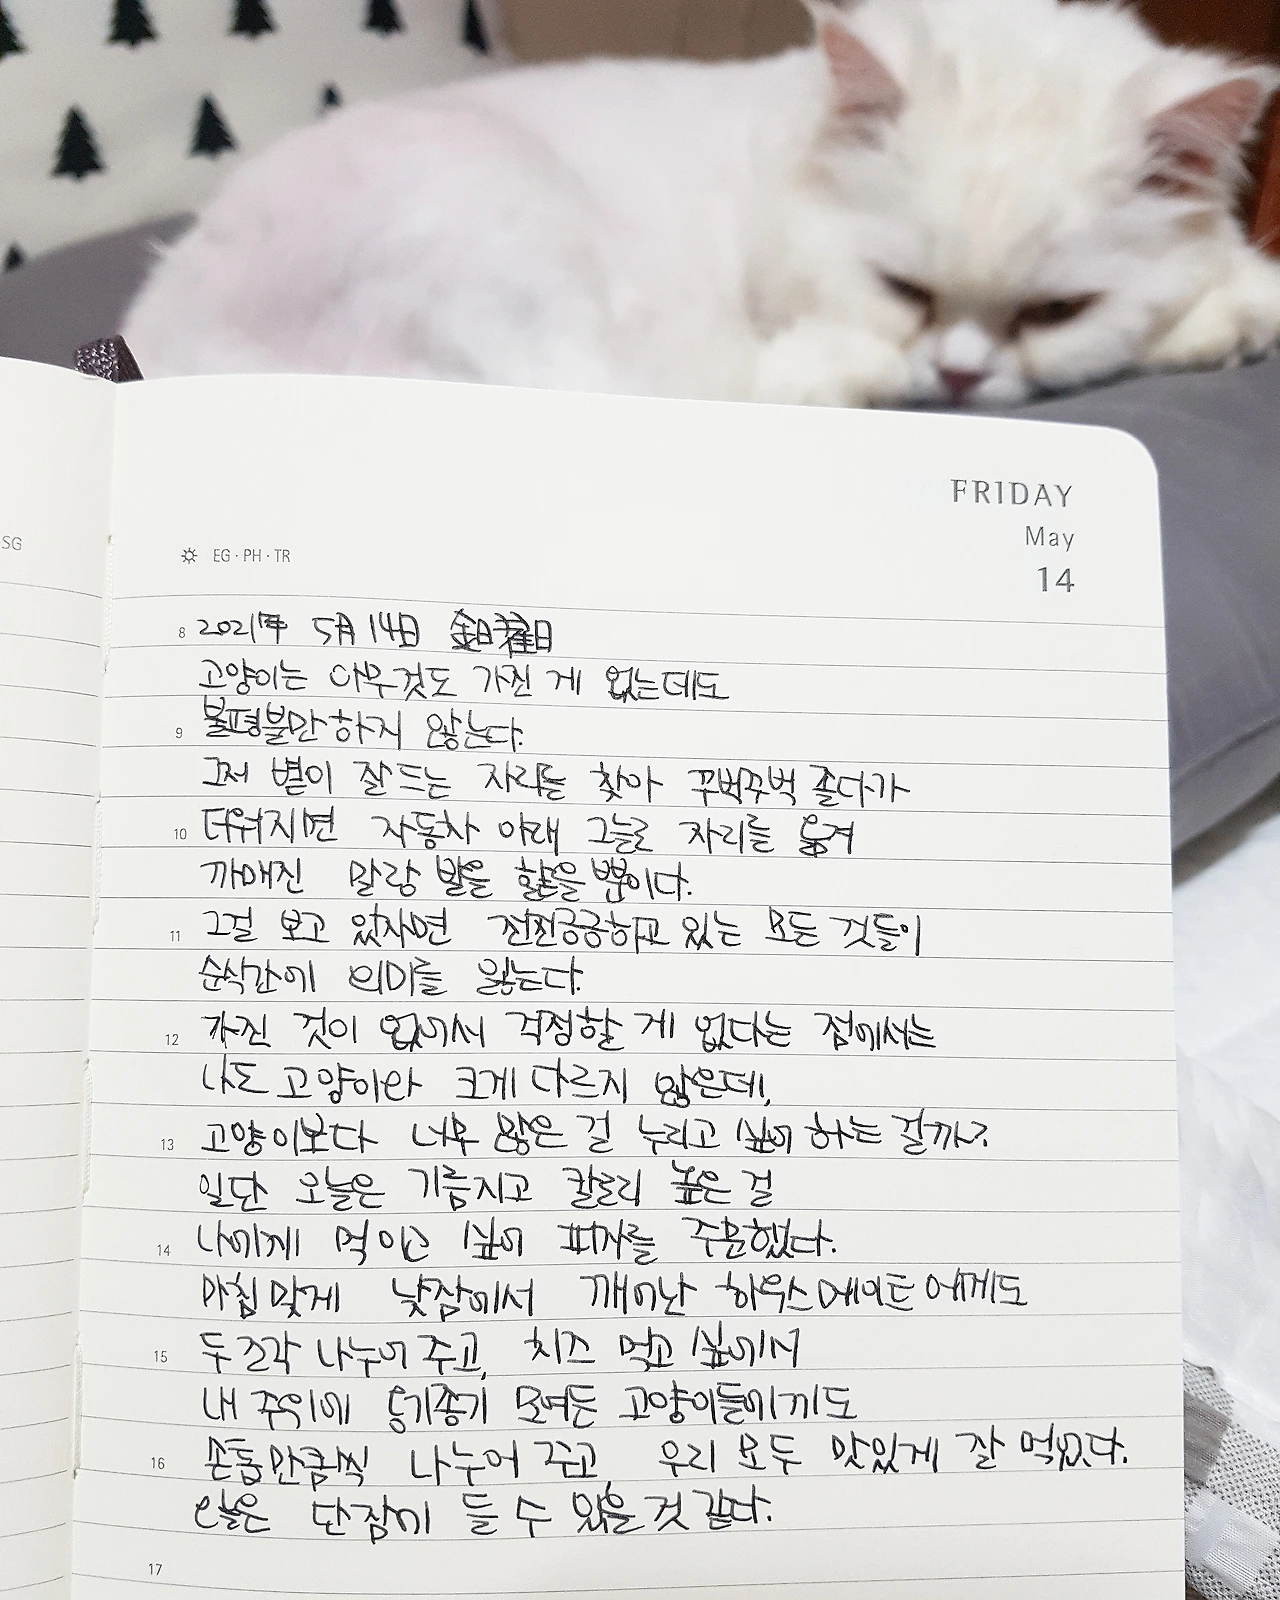 FRIDAY
May
14
SG
EG · PH · TR
8 2021年 5月 14日 金曜日
고양이는 아무것도 가진 게 없는데도
9 불평불만하지 않는다.
그저 볕이 잘 드는 자리를 찾아 꾸벅꾸벅 졸다가
10 더워지면 자동차 아래 그늘로 자리를 옮겨
까매진 말랑 발을 핥을 뿐이다.
11 그걸 보고 있자면 전전긍긍하고 있는 모든 것들이
순식간에 의미를 잃는다.
12 가진 것이 없어서 걱정할 게 없다는 점에서는
나도 고양이랑 크게 다르지 않은데,
13 고양이보다 너무 많은 걸 누리고 싶어 하는 걸까?
일단 오늘은 기름지고 칼로리 높은 걸
14 나에게 먹이고 싶어 피자를 주문했다.
마침맞게 낮잠에서 깨어난 하우스메이트에게도
15 두 조각 나누어 주고, 치즈 먹고 싶어서
내 주위에 옹기종기 모여든 고양이들에게도
16 손톱만큼씩 나누어 주고, 우리 모두 맛있게 잘 먹었다.
오늘은 단잠에 들 수 있을 것 같다.
17